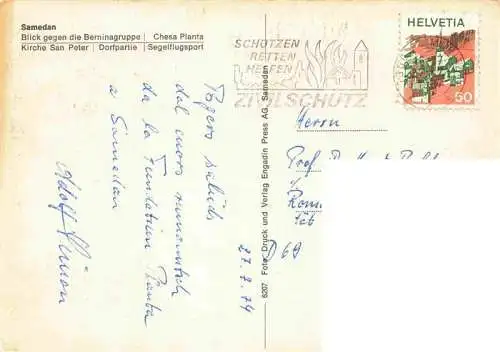 Samedan
Blick gegen die Berninagruppe | Chesa Planta
Kirche San Peter | Dorfpartie | Segelflugsport
SCHÜTZEN
RETTEN
HELFEN
ZIVILSCHUTZ
HELVETIA
50
salüds
dal cuors rumauntsch
da la Fundaziun Planta
a Samedan
Adolf
27.7.74
6207 Foto, Druck und Verlag Engadin Press AG, Samedan
Herrn
Prof.
D 69